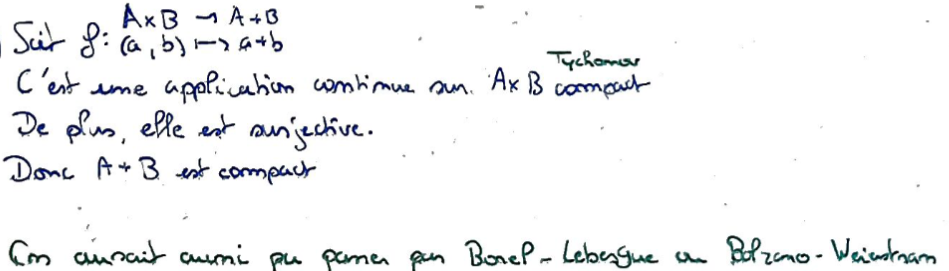 A × B → A + B
Soit f : (a, b) ↦ a + b
Tychonov
C'est une application continue sur A × B compact
De plus, elle est surjective.
Donc A + B est compact
On aurait aussi pu passer par Borel-Lebesgue ou Bolzano-Weierstrass